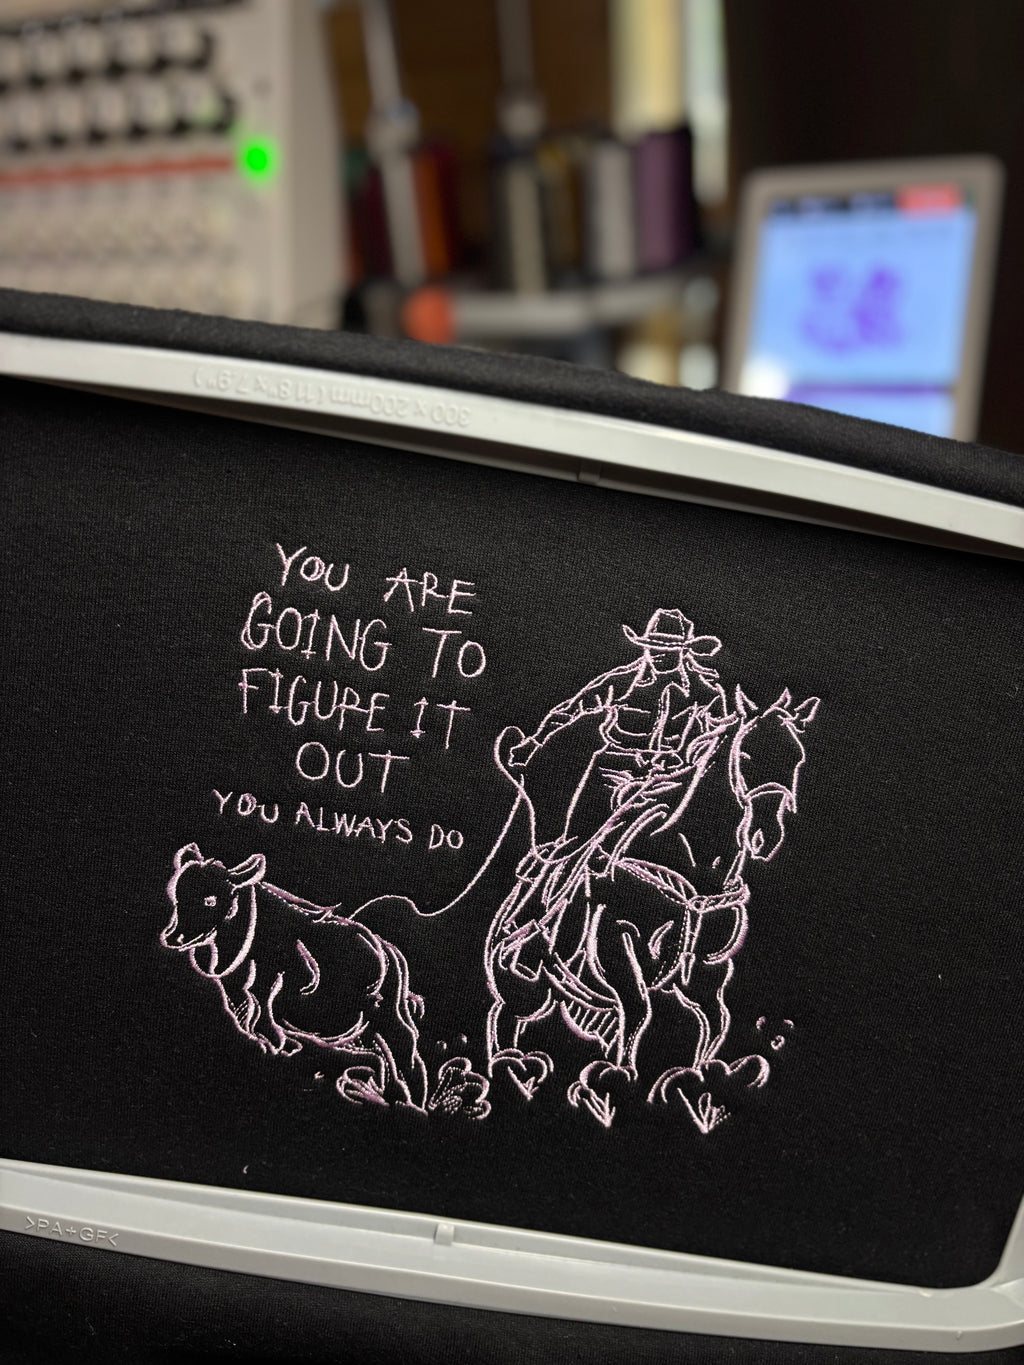 300 x 200mm (11.8" x 7.9")
YOU ARE
GOING TO
FIGURE IT
OUT
YOU ALWAYS DO
>PA+GF<